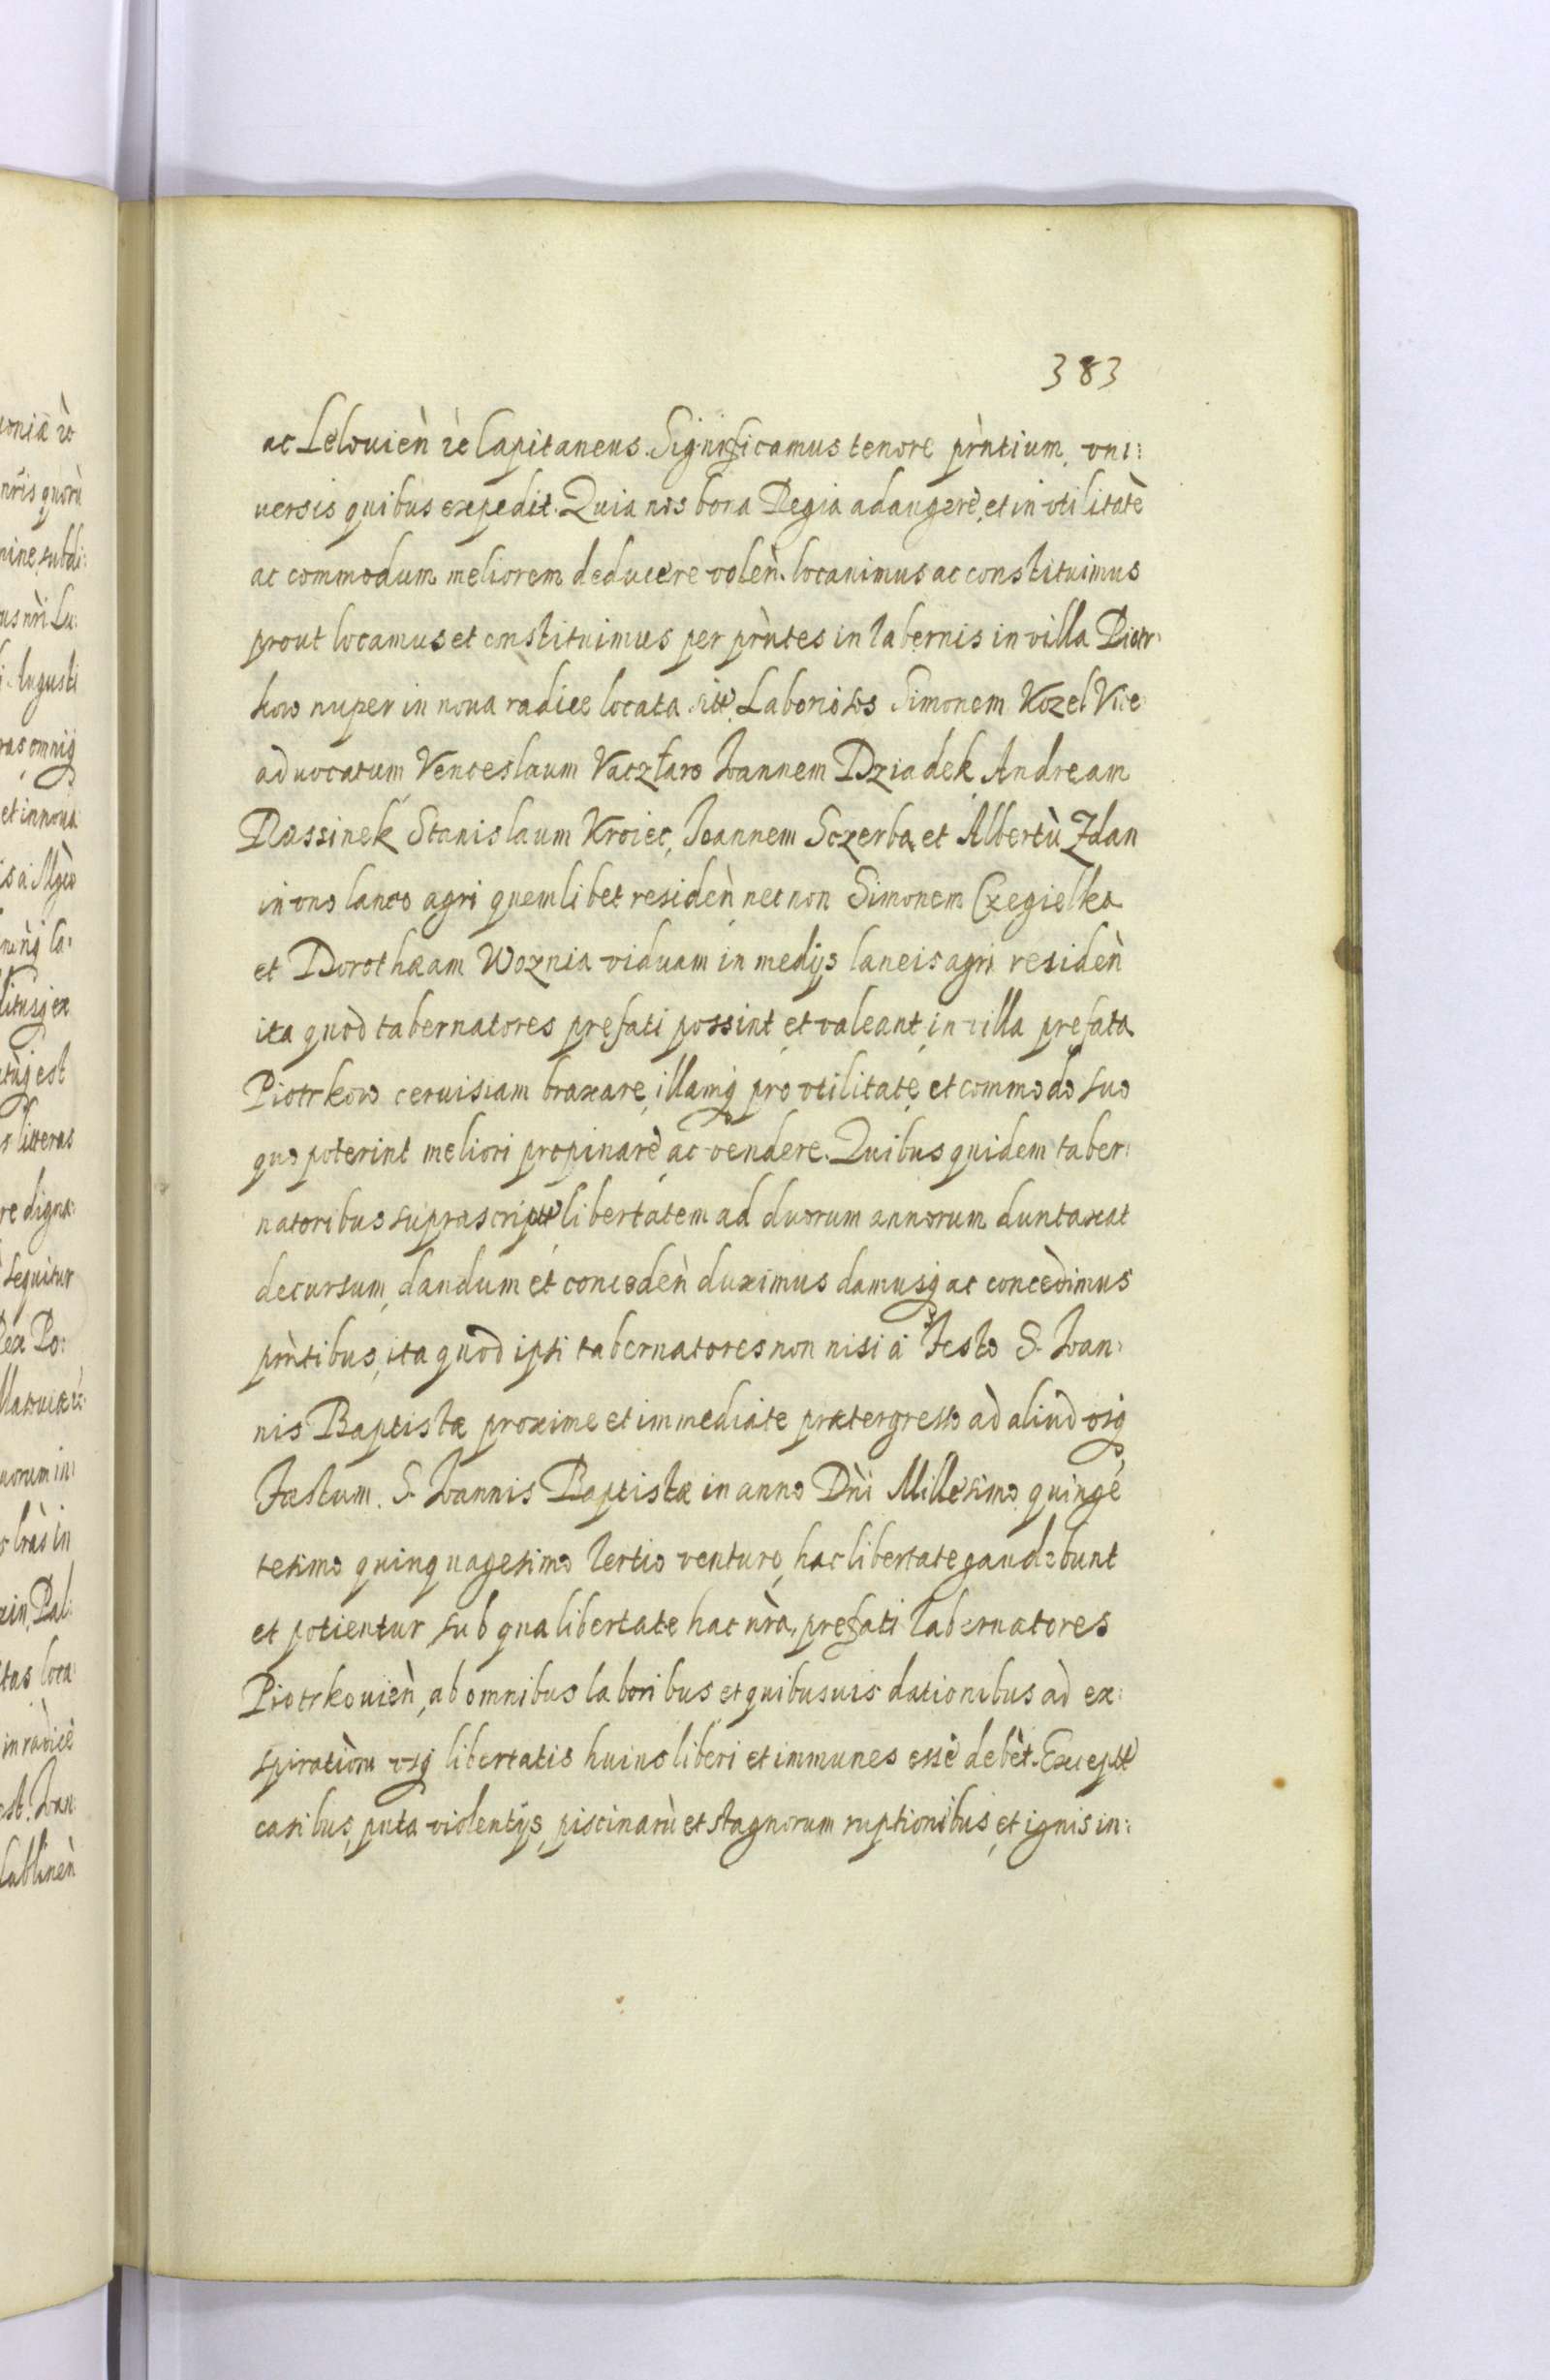 383
ac Lelouien̄ ꝛc Capitaneus. Significamus tenore pr̀ntium, vni:
uersis quibus expedit. Quia nos bona Regia adaugerè, et in vtilitatè
ac commodum meliorem deducere volen̄. locauimus ac constituimus
prout locamus et constituimus per pr̀ntes in tabernis in villa Piotr:
kow nuper in noua radice locata Laboriosos Simonem Kozel Vice
aduocatum, Venceslaum Vaczław Ioannem Dziadek Andream
Stanislaum Kroiec, Ioannem Sczerba, et Albertù Zdan
in vno laneo agri quemlibet residen̄ nec non Simonem Czegielka
et Dorothæam Woznia viduam in medijs laneis agri residen̄
ita quòd tabernatores prefati possint et valeant, in villa prefata
Piotrkow ceruisiam braxare, illamq́ pro vtilitate et commodo suo
quo poterint meliori propinarè ac vendere. Quibus quidem taber:
natoribus suprascriptt libertatem ad duorum annorum duntaxat
decursum, dandum et conceden̄ duximus damusq́ ac concèdimus
pr̀ntibus, ita quod ipsi tabernatores non nisi à Festo S. Ioan:
nis Baptistæ proxime et immediate prætergresso ad aliud vsq́
Fæstum S. Ioannis Baptistæ in anno Dǹi Millesimo quingē
tesimo quinquagesimo tertio venturo, hac libertate gaudebunt
et potientur, sub qua libertate hac nr̀a, prefati tabernatores
Piotrkouien̄, ab omnibus laboribus et quibusuis dationibus ad ex:
spirationē vsq́ libertatis huius liberi et immunes essè debèt. Exceptt
casibus puta violentijs, piscinarù et stagnorum ruptionibus, et ignis in: